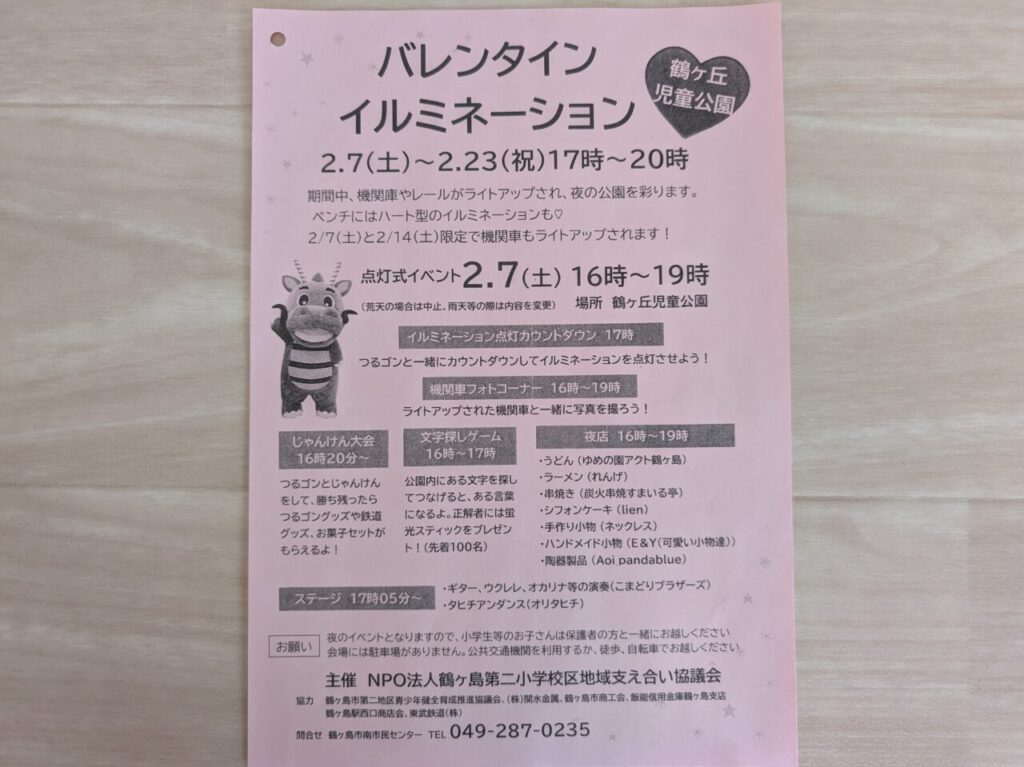 バレンタイン
イルミネーション
鶴ヶ丘
児童公園
2.7(土)～2.23(祝)17時～20時
期間中、機関庫やレールがライトアップされ、夜の公園を彩ります。
ベンチにはハート型のイルミネーションも♡
2/7(土)と2/14(土)限定で機関車もライトアップされます！
点灯式イベント2.7(土) 16時～19時
(荒天の場合は中止、雨天等の際は内容を変更) 場所 鶴ヶ丘児童公園
イルミネーション点灯カウントダウン 17時
つるゴンと一緒にカウントダウンしてイルミネーションを点灯させよう！
機関車フォトコーナー 16時～19時
ライトアップされた機関車と一緒に写真を撮ろう！
じゃんけん大会
16時20分～
つるゴンとじゃんけん
をして、勝ち残ったら
つるゴングッズや鉄道
グッズ、お菓子セットが
もらえるよ！
文字探しゲーム
16時～17時
公園内にある文字を探し
てつなげると、ある言葉
になるよ。正解者には蛍
光スティックをプレゼン
ト！(先着100名)
夜店 16時～19時
・うどん (ゆめの園アクト鶴ヶ島)
・ラーメン (れんげ)
・串焼き (炭火串焼すまいる亭)
・シフォンケーキ (lien)
・手作り小物 (ネックレス)
・ハンドメイド小物 (E&Y(可愛い小物達))
・陶器製品 (Aoi pandablue)
ステージ 17時05分～
・ギター、ウクレレ、オカリナ等の演奏(こまどりブラザーズ)
・タヒチアンダンス(オリタヒチ)
お願い
夜のイベントとなりますので、小学生等のお子さんは保護者の方と一緒にお越しください
会場には駐車場がありません。公共交通機関を利用するか、徒歩、自転車でお越しください
主催 NPO法人鶴ヶ島第二小学校区地域支え合い協議会
協力 鶴ヶ島市第二地区青少年健全育成推進協議会、(株)関水金属、鶴ヶ島市商工会、飯能信用金庫鶴ヶ島支店
鶴ヶ島駅西口商店会、東武鉄道(株)
問合せ 鶴ヶ島市南市民センター TEL 049-287-0235